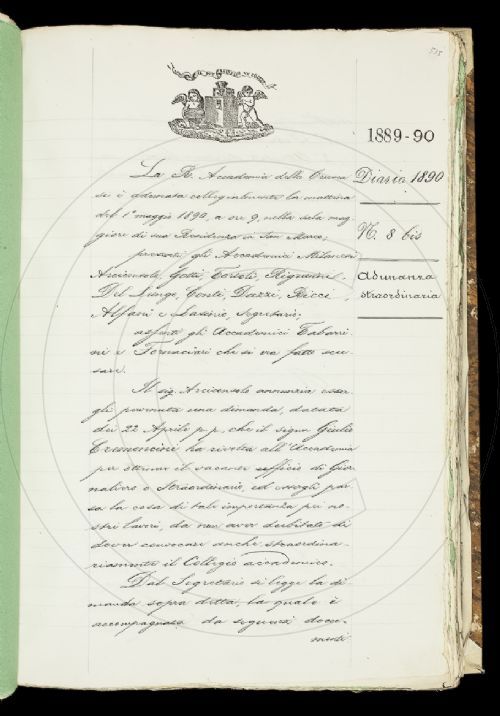 515
1889-90
Diario 1890
N. 8 bis
Adunanza
straordinaria
La R. Accademia della Crusca
si è adunata collegialmente la mattina
del 1º maggio 1890, a ore 9, nella sala mag-
giore di sua Residenza in San Marco,
presenti gli Accademici Milanesi
Arciconsolo, Gotti, Tortoli, Rigutini,
Del Lungo, Conti, Dazzi, Ricce,
Alfani e Lasinio, Segretario;
assenti gli Accademici Tabarri-
ni e Fornaciari che si era fatto scu-
sare.
Il sig. Arciconsolo annunzia esser-
gli pervenuta una dimanda, datata
dei 22 Aprile p. p., che il signor Giulio
Cremoncini ha rivolta all'Accademia
per ottenere il vacante ufficio di Gior-
naliero o Straordinario, ed essergli par-
sa la cosa di tale importanza pei no-
stri lavori, da non aver dubitato di
dover convocare anche straordina-
riamente il Collegio accademico.
Dal Segretario si legge la di-
manda sopra detta, la quale è
accompagnata da seguenti docu-
menti